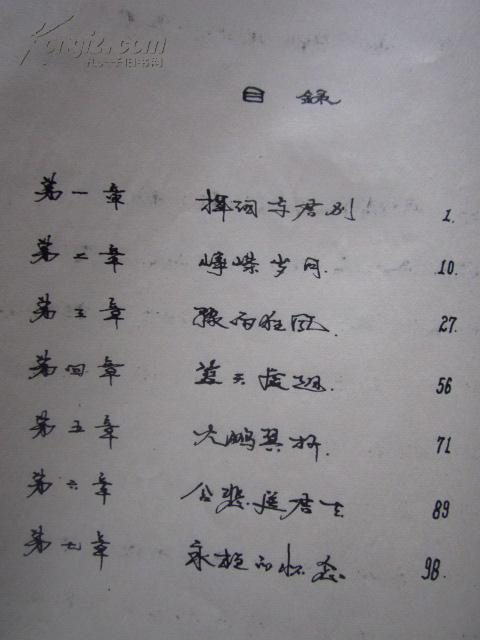 Kongfz.com
孔夫子旧书网
目 錄
第一章 挥泪与君别 1.
第二章 峥嵘岁月. 10.
第三章 骤雨狂风. 27.
第四章 蓝天虚翅. 56
第五章 大鹏翼折. 71
第六章 含悲送君去 89
第七章 永恒的怀念. 98.